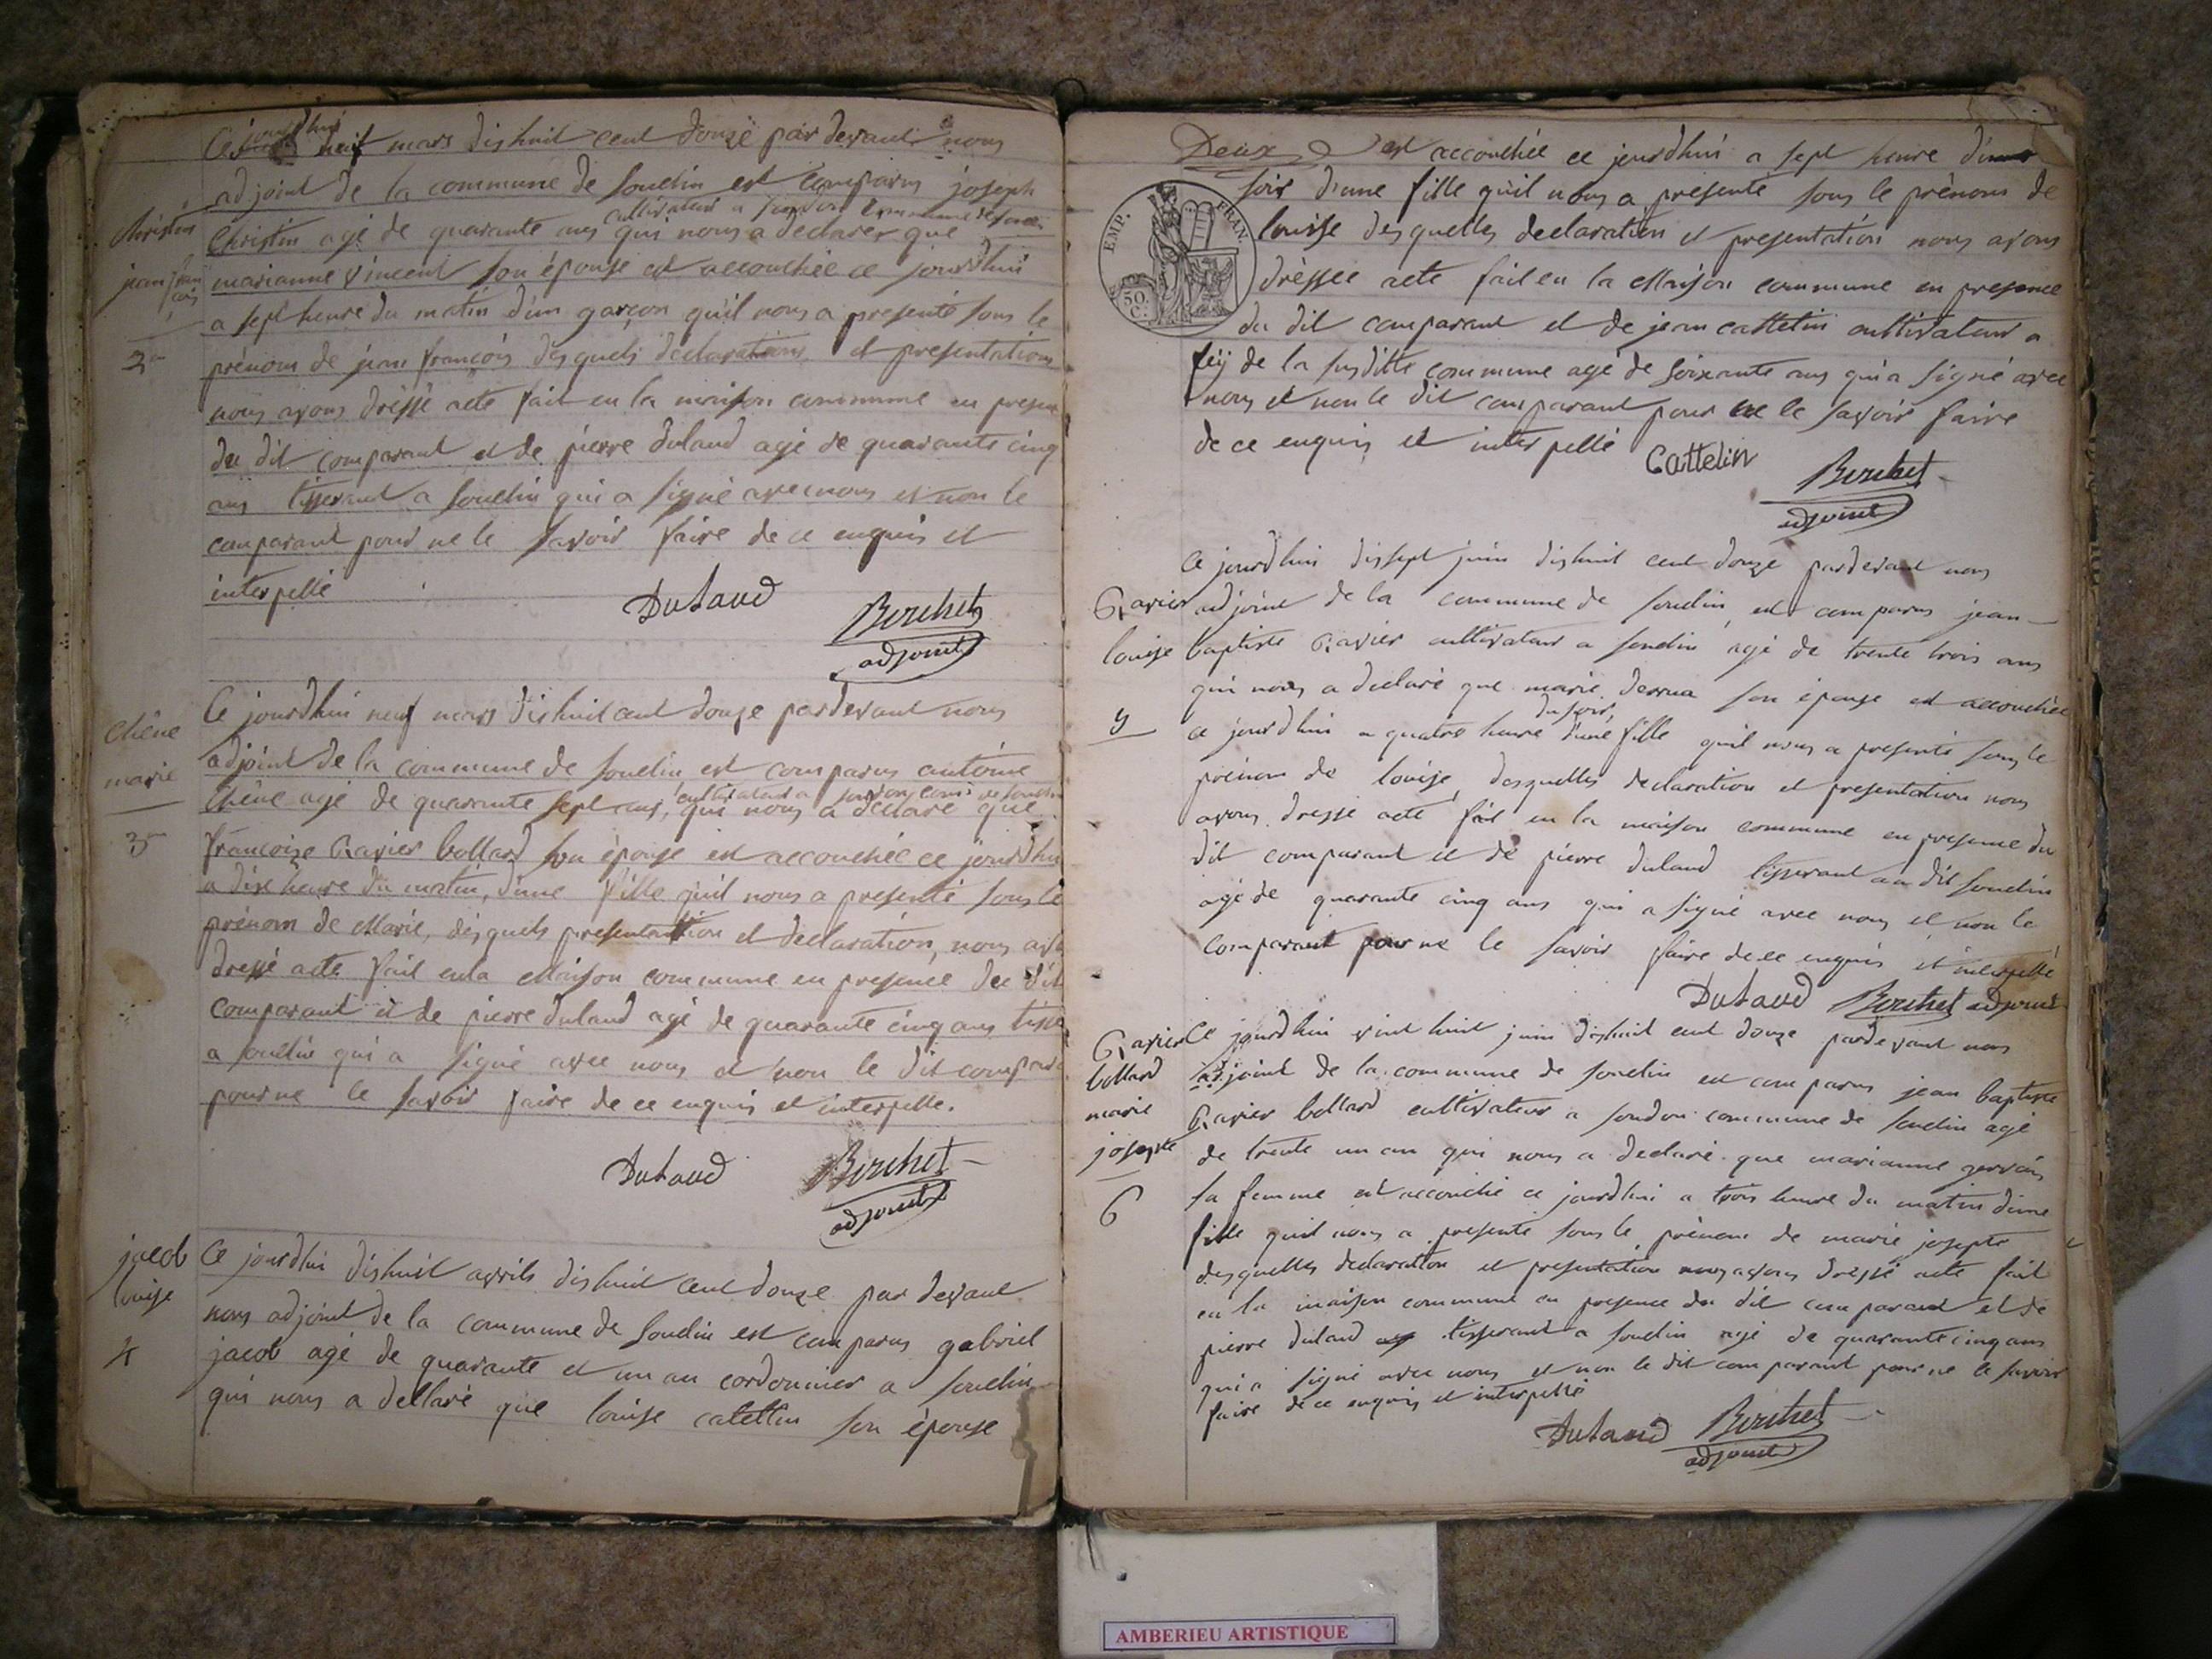 Ce jourdhui neuf mars dishuit cent douze par devant nous
adjoint de la commune de Souclin est comparus joseph
Christin
cultivateur a Soudon commune de Souclin
Christin agé de quarante ans qui nous a declarer que
jean françois
marianne vincent son épouse est accouchée ce jourdhui
a sept heure du matin d'un garçon qu'il nous a presenté sous le
2
prénom de jean françois desquels declarations et presentations
nous avons dréssé acte fait en la maison commune en presen
du dit comparant et de pierre dulaud agé de quarante cinq
ans tisserand a Souclin qui a signé avec nous et non le
comparant pour ne le savoir faire de ce enquis et
interpellé
Dulaud
Berthet
adjoint
Ce jourdhui neuf mars dishuit cent douze pardevant nous
Chêne
adjoint de la commune de Souclin est comparus antoine
marie
cultivateur a Soudon com: de Souclin
Chêne agé de quarante sept ans, qui nous a déclaré que
3
françoise Ravier bollard son épouse est accouchée ce jourdhui
a dix heure du matin, d'une fille qu'il nous a presenté sous le
prénom de Marie, desquels presentation et declaration, nous avo
dressé acte fait en la Maison commune en presence du dit
comparant et de pierre dulaud agé de quarante cinq ans tisse
a Souclin qui a signé avec nous et non le dit compara
pour ne le savoir faire de ce enquis et interpelle.
Dulaud
Berthet
adjoint
jacob
Ce jourdhui dishuit avrils dishuit cent douze par devant
louise
nous adjoint de la commune de Souclin est comparus gabriel
4
jacob agé de quarante et un an cordonnier a Souclin
qui nous a dellaré que louise catellin son épouse
Deux
est accouchée ce jourdhui a sept heure du
soir d'une fille qu'il nous a presenté sous le prénom de
EMP. FRAN.
50. C.
louise desquelles declaration et presentation nous avons
dréssee acte fait en la Maison commune en presence
du dit comparant et de jean cattelin cultivateur a
féÿ de la susditte commune agé de soixante ans qui a signé avec
nous et non le dit comparant pour ne le savoir faire
de ce enquis et interpellé
Cattelin
Berthet
adjoint
Ce jourdhui dissept juin dishuit cent douze pardevant nous
Ravier
adjoint de la commune de Souclin est comparus jean
louise
baptiste Ravier cultivateur a Souclin agé de trente trois ans
qui nous a declaré que marie derrua son épouse est accouchée
5
du soir,
ce jourdhui a quatre heure d'une fille quil nous a presenté sous le
prénom de louise, desquelles declaration et presentation nous
avons dressé acte fait en la maison commune en presence du
dit comparant et de pierre dulaud tisserant au dit Souclin
agé de quarante cinq ans qui a signé avec nous et non le
comparant pour ne le savoir faire de ce enquis et interpellé
Dulaud Berthet adjoint
Ravier
Ce jourdhui vint huit juin dishuit cent douze pardevant nous
bollard
adjoint de la commune de Souclin est comparus jean baptiste
marie
Ravier bollard cultivateur a Soudon commune de Souclin agé
josepte
de trente un an qui nous a declaré que marianne gervais
6
sa femme est accouché ce jourdhui a trois heure du matin d'une
fille quil nous a presenté sous le prénom de marie josepte
desquelles declaration et presentation nous avons dressé acte fait
en la maison commune en presence du dit comparant et de
pierre dulaud tisserant a Souclin agé de quarante cinq ans
qui a signé avec nous et non le dit comparant pour ne le savoir
faire de ce enquis et interpellé
Dulaud
Berthet
adjoint
AMBERIEU ARTISTIQUE